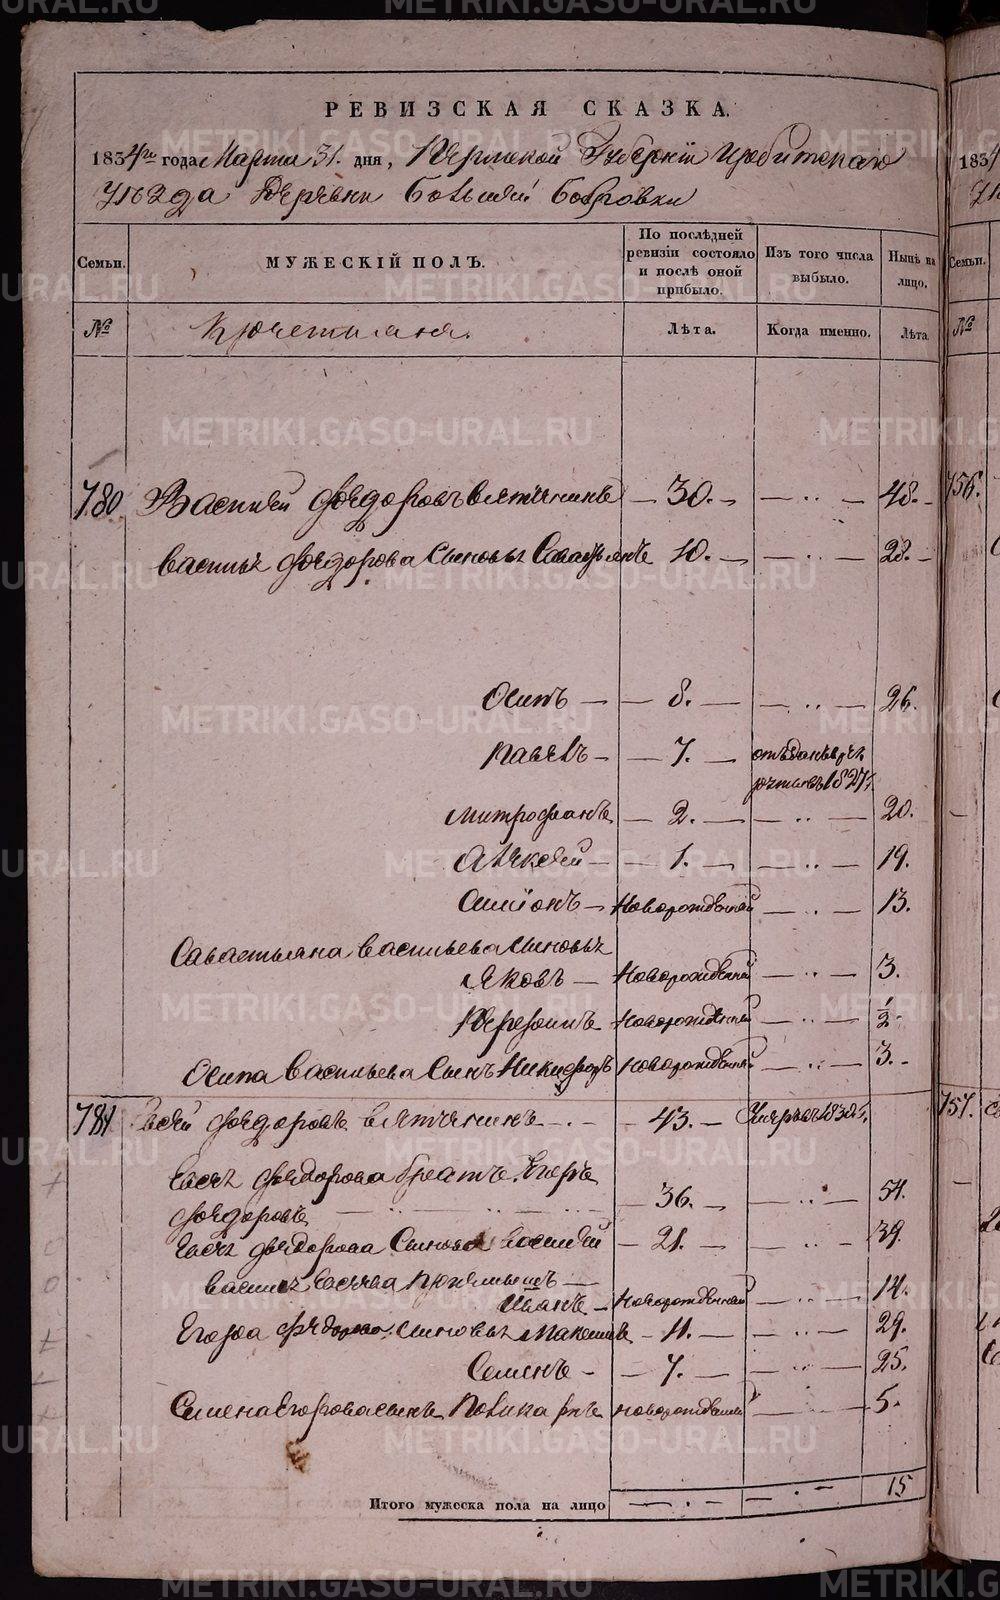 РЕВИЗСКАЯ СКАЗКА.
1834го года Марта 31. дня, Пермской Губернiи Ирбитскаго
Уѣзда Деревни Большей Бобровки
Семьи.
МУЖЕСКIЙ ПОЛЪ.
По послѣдней ревизiи состояло и послѣ оной прибыло.
Изъ того числа выбыло.
Нынѣ на лицо.
№
Крестьяня.
Лѣта.
Когда именно.
Лѣта
780 Василей Федоровъ Вятчининъ — 30. — — .. — 48. —
Василья Федорова Сыновья Савастьянъ 10. — — .. — 28. —
Осипъ — — 8. — — .. — 26.
Павелъ — — 7. — отъданъ въ
рекруты въ 1827.
Митрофанъ — 2. — — .. — 20.
Алексей — — 1. — — .. — 19.
Симiонъ — Новорожденной — .. — 13.
Савастьяна Васильева Сыновья
Яковъ — Новорожденной — .. — 3.
Перфилъ Новорожденной — .. — ½.
Осипа Васильева Сынъ Никифоръ новорожденной — .. — 3. —
781 Евсей Федоровъ Вятчининъ — . — — 43. — Умеръ въ 1832.
Евсея Федорова братъ Егоръ
Федоровъ — 36. — — .. — 54.
Евсея Федорова Сыновья Василей — 21. — — .. — 39.
Василья Евсеева
Иванъ — Новорожденной — .. — 14.
Егора Федорова Сыновья Максимъ — 11. — — .. — 29.
Семенъ — — 7. — — .. — 25.
Семена Егорова сынъ Поликарпъ новорожденный — .. — 5.
Итого мужеска пола на лицо — . — — . — 15
183
Семьи.
№
756.
757.